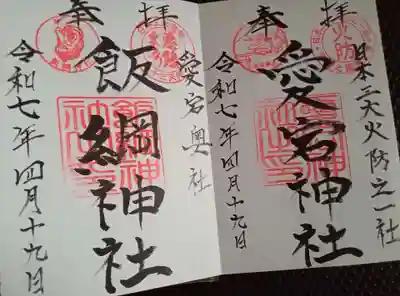 奉拝
日本三大火防之一社
愛宕神社
令和七年四月十九日
奉拝
愛宕奥社
飯綱神社
令和七年四月十九日